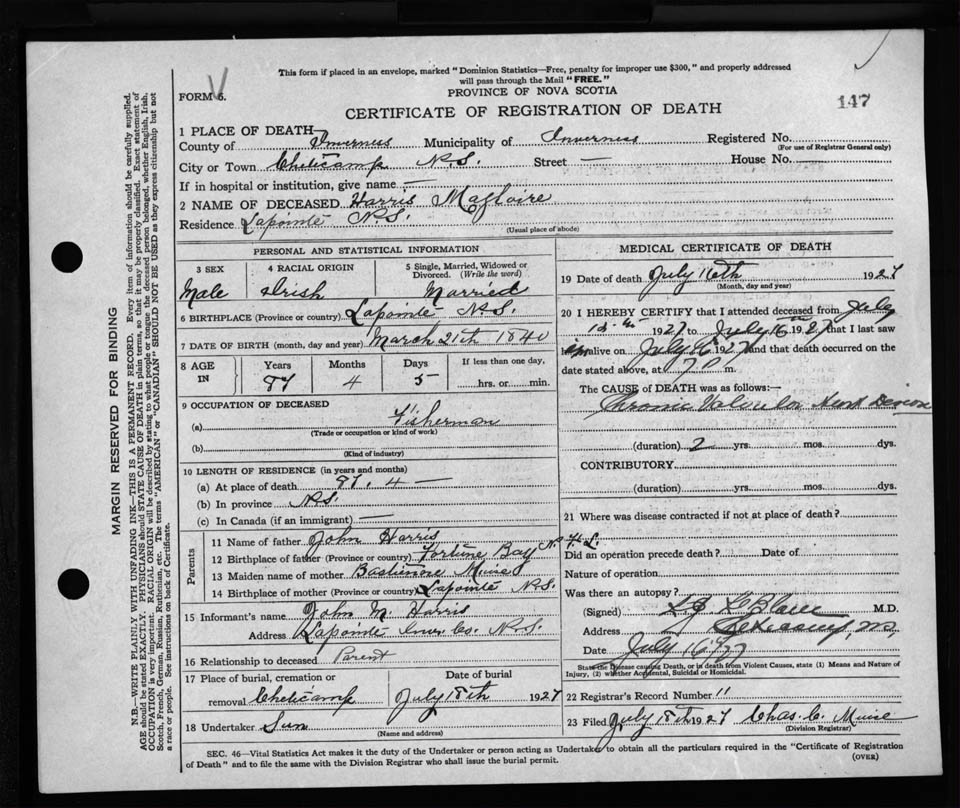 This form if placed in an envelope, marked "Dominion Statistics—Free, penalty for improper use $300," and properly addressed
will pass through the Mail "FREE."
FORM 6.
PROVINCE OF NOVA SCOTIA
CERTIFICATE OF REGISTRATION OF DEATH
147
1 PLACE OF DEATH—
County of Inverness Municipality of Inverness Registered No.
(For use of Registrar General only)
City or Town Cheticamp N.S. Street — House No. —
If in hospital or institution, give name —
2 NAME OF DECEASED Harris Magloire
Residence Lapointe N.S.
(Usual place of abode)
PERSONAL AND STATISTICAL INFORMATION
3 SEX 4 RACIAL ORIGIN 5 Single, Married, Widowed or Divorced. (Write the word)
Male Irish Married
6 BIRTHPLACE (Province or country) Lapointe N.S.
7 DATE OF BIRTH (month, day and year) March 21th 1840
8 AGE IN Years Months Days If less than one day,
87 4 5 hrs. or min.
9 OCCUPATION OF DECEASED
(a) Fisherman
(Trade or occupation or kind of work)
(b)
(Kind of industry)
10 LENGTH OF RESIDENCE (in years and months)
(a) At place of death 87. 4 —
(b) In province N.S.
(c) In Canada (if an immigrant) —
Parents
11 Name of father John Harris
12 Birthplace of father (Province or country) Fortune Bay N.F.L.
13 Maiden name of mother Bastinone Muise
14 Birthplace of mother (Province or country) Lapointe N.S.
15 Informant's name John M. Harris
Address Lapointe Inver. Co. N.S.
16 Relationship to deceased Parent
17 Place of burial, cremation or removal Date of burial
Cheticamp July 18th 1927
18 Undertaker Sun
(Name and address)
MEDICAL CERTIFICATE OF DEATH
19 Date of death July 16th 1927
(Month, day and year)
20 I HEREBY CERTIFY that I attended deceased from July
1927 to July 16 1927 that I last saw
him alive on July 16 1927 and that death occurred on the
date stated above, at m.
The CAUSE of DEATH was as follows:—
Chronic Valvular Heart Disease
(duration) 2 yrs. mos. dys.
CONTRIBUTORY
(duration) yrs. mos. dys.
21 Where was disease contracted if not at place of death?
Did an operation precede death? Date of
Nature of operation
Was there an autopsy?
(Signed) LeBlanc M.D.
Address
Date July 16/27
State the Disease causing Death, or in death from Violent Causes, state (1) Means and Nature of
Injury, (2) whether Accidental, Suicidal or Homicidal.
22 Registrar's Record Number 11
23 Filed July 18th 1927 Chas. C. Muise
(Division Registrar)
SEC. 46—Vital Statistics Act makes it the duty of the Undertaker or person acting as Undertaker to obtain all the particulars required in the "Certificate of Registration
of Death" and to file the same with the Division Registrar who shall issue the burial permit.
(OVER)
MARGIN RESERVED FOR BINDING
N.B.—WRITE PLAINLY WITH UNFADING INK—THIS IS A PERMANENT RECORD. Every item of information should be carefully supplied.
AGE should be stated EXACTLY. PHYSICIANS should STATE CAUSE OF DEATH in plain terms, so that it may be properly classified. Exact statement of
OCCUPATION is very important. RACIAL ORIGIN will be described by stating to what people or tongue the deceased person belonged, whether English, Irish,
Scotch, French, German, Russian, Ruthenian, etc. The terms "AMERICAN" or "CANADIAN" SHOULD NOT BE USED as they express citizenship but not
a race or people. See instructions on back of Certificate.